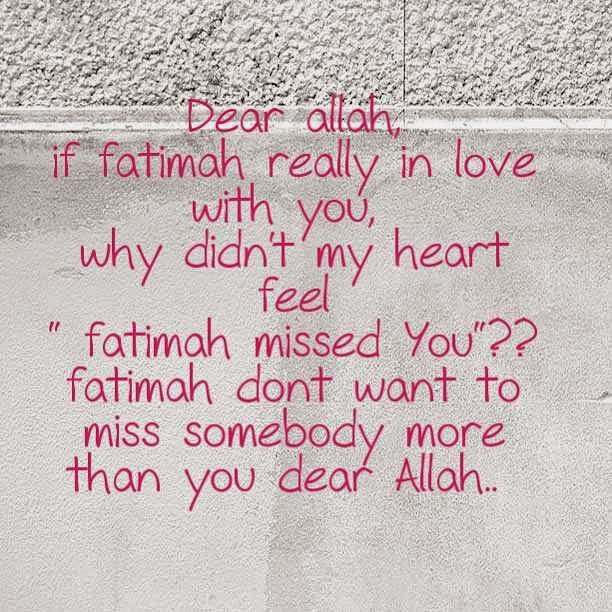 Dear allah,
if fatimah really in love
with you,
why didn't my heart
feel
" fatimah missed You"??
fatimah dont want to
miss somebody more
than you dear Allah..